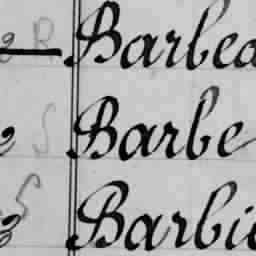 R Barbea
S Barbe
S Barbie